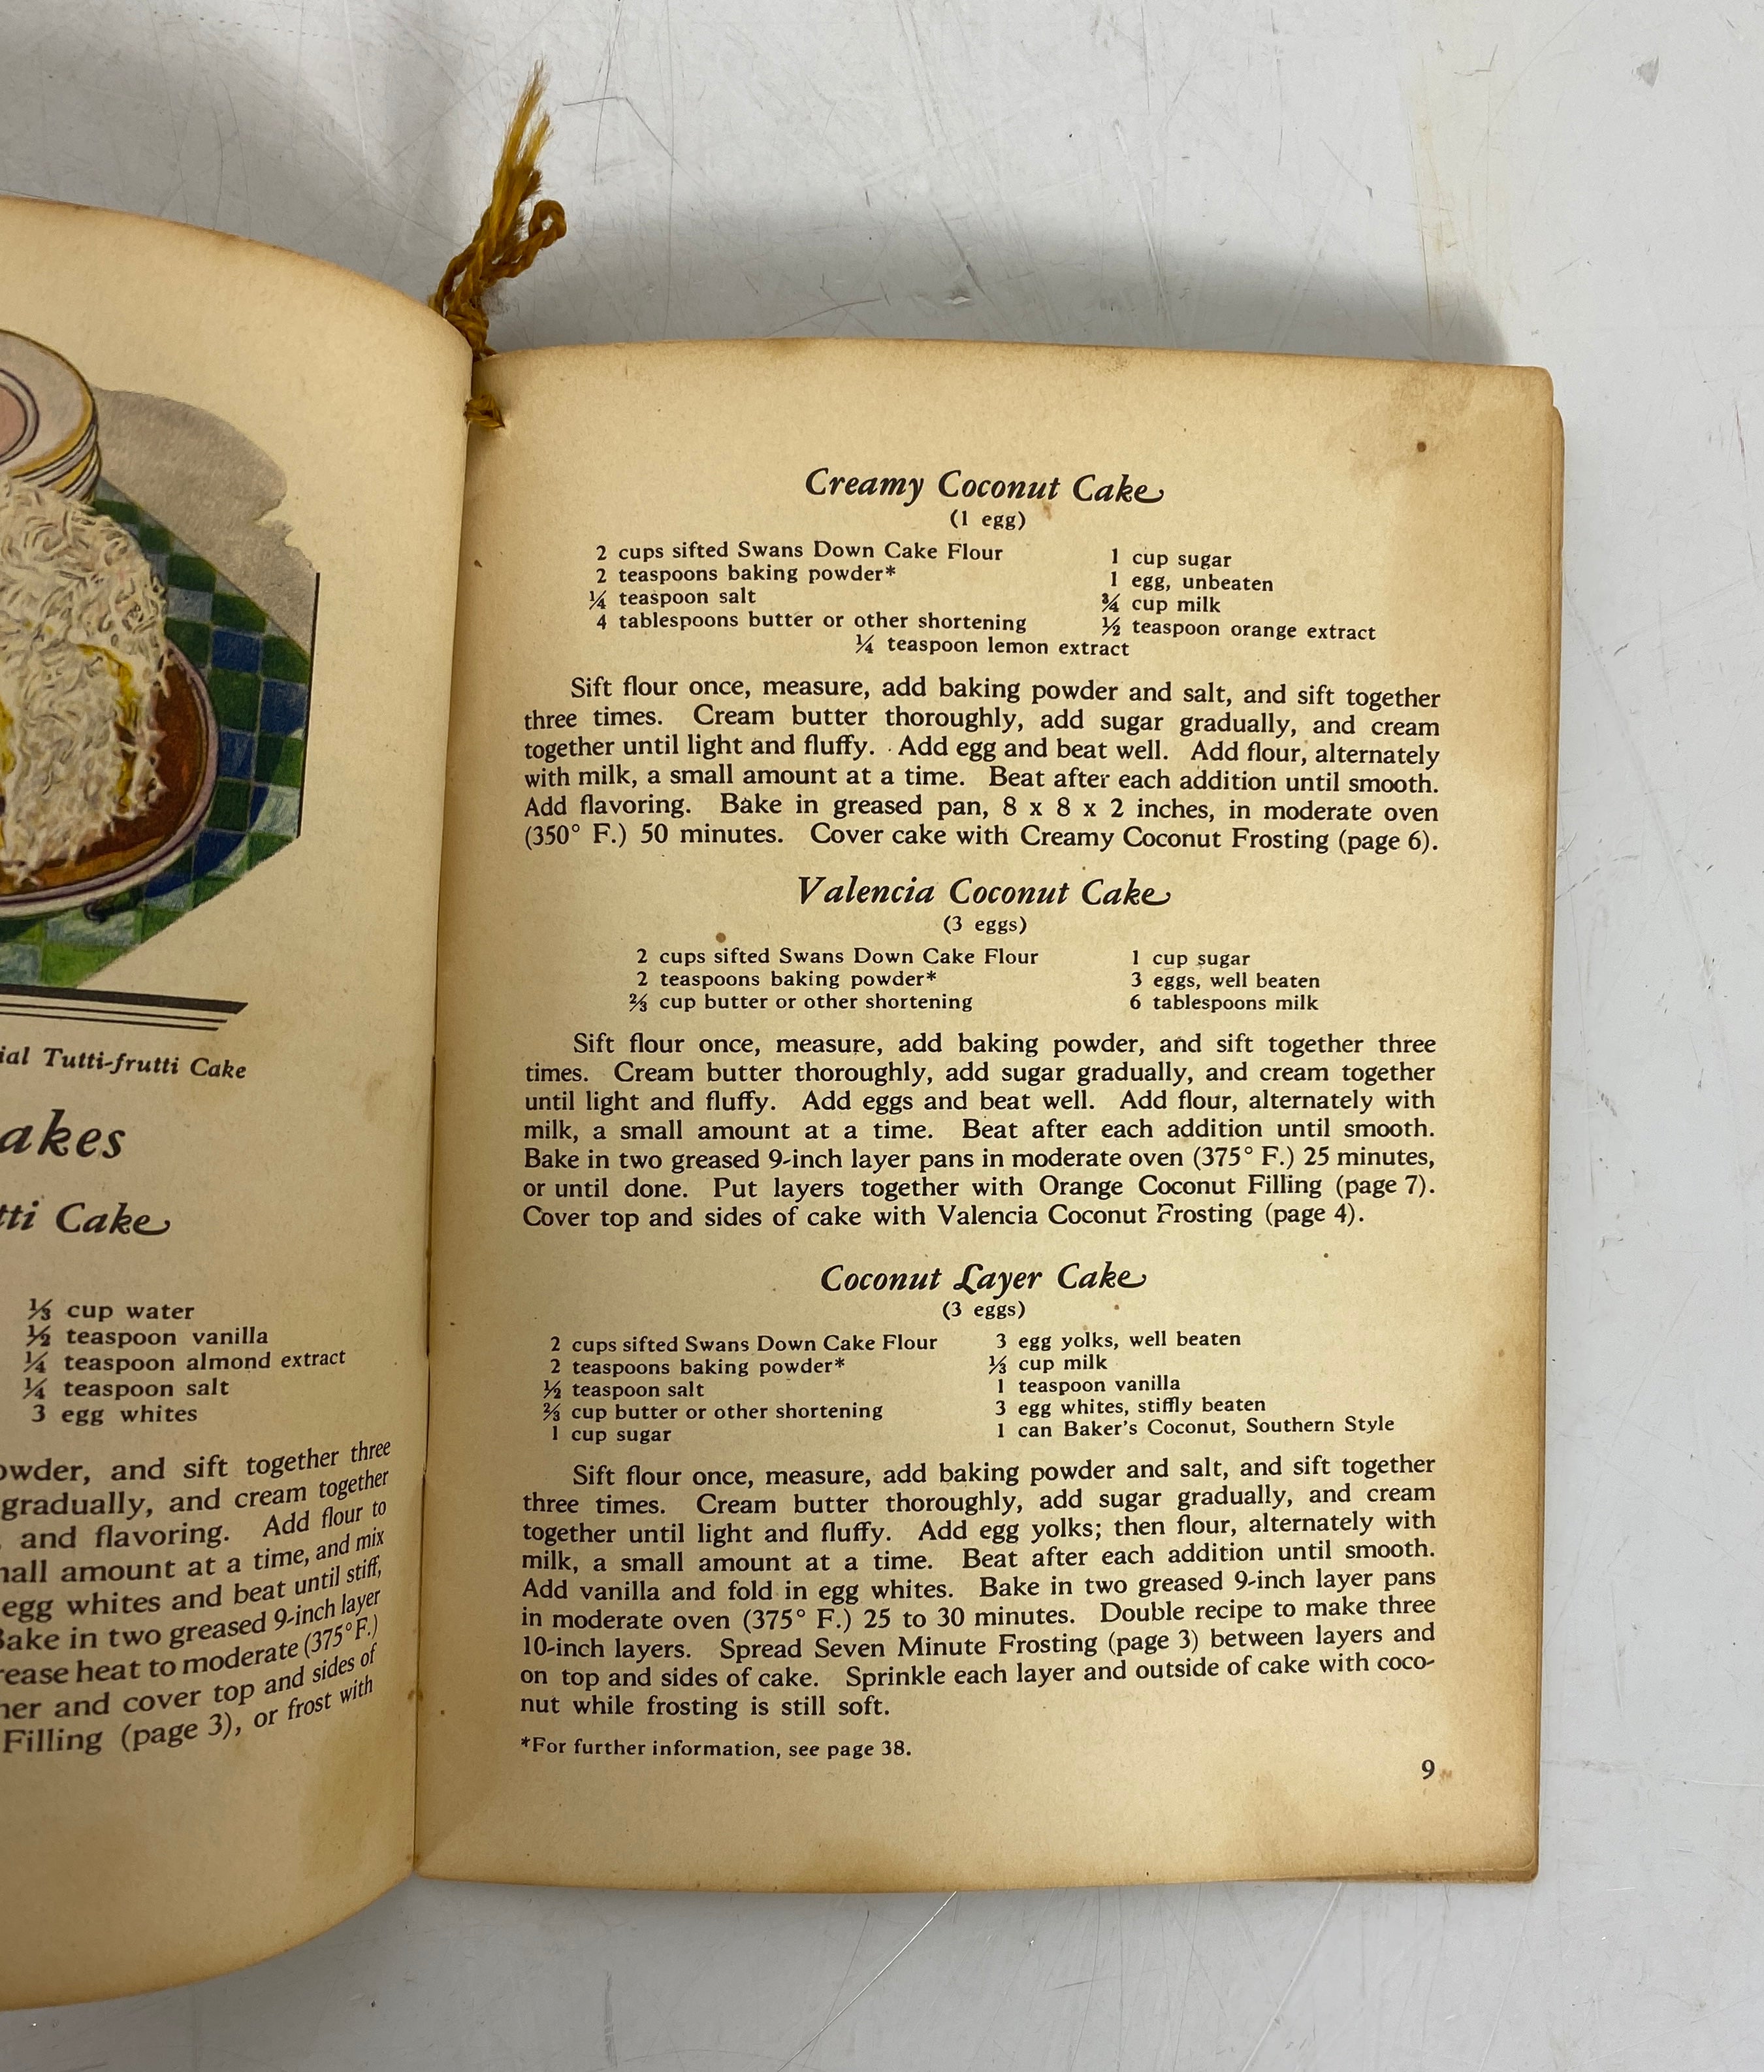 ial Tutti-frutti Cake
akes
tti Cake
⅓ cup water
½ teaspoon vanilla
¼ teaspoon almond extract
¼ teaspoon salt
3 egg whites
owder, and sift together three
gradually, and cream together
, and flavoring. Add flour to
all amount at a time, and mix
egg whites and beat until stiff,
Bake in two greased 9-inch layer
rease heat to moderate (375° F.)
her and cover top and sides of
Filling (page 3), or frost with
Creamy Coconut Cake
(1 egg)
2 cups sifted Swans Down Cake Flour 1 cup sugar
2 teaspoons baking powder* 1 egg, unbeaten
¼ teaspoon salt ¾ cup milk
4 tablespoons butter or other shortening ½ teaspoon orange extract
¼ teaspoon lemon extract
Sift flour once, measure, add baking powder and salt, and sift together
three times. Cream butter thoroughly, add sugar gradually, and cream
together until light and fluffy. Add egg and beat well. Add flour, alternately
with milk, a small amount at a time. Beat after each addition until smooth.
Add flavoring. Bake in greased pan, 8 x 8 x 2 inches, in moderate oven
(350° F.) 50 minutes. Cover cake with Creamy Coconut Frosting (page 6).
Valencia Coconut Cake
(3 eggs)
2 cups sifted Swans Down Cake Flour 1 cup sugar
2 teaspoons baking powder* 3 eggs, well beaten
⅔ cup butter or other shortening 6 tablespoons milk
Sift flour once, measure, add baking powder, and sift together three
times. Cream butter thoroughly, add sugar gradually, and cream together
until light and fluffy. Add eggs and beat well. Add flour, alternately with
milk, a small amount at a time. Beat after each addition until smooth.
Bake in two greased 9-inch layer pans in moderate oven (375° F.) 25 minutes,
or until done. Put layers together with Orange Coconut Filling (page 7).
Cover top and sides of cake with Valencia Coconut Frosting (page 4).
Coconut Layer Cake
(3 eggs)
2 cups sifted Swans Down Cake Flour 3 egg yolks, well beaten
2 teaspoons baking powder* ⅓ cup milk
½ teaspoon salt 1 teaspoon vanilla
⅔ cup butter or other shortening 3 egg whites, stiffly beaten
1 cup sugar 1 can Baker's Coconut, Southern Style
Sift flour once, measure, add baking powder and salt, and sift together
three times. Cream butter thoroughly, add sugar gradually, and cream
together until light and fluffy. Add egg yolks; then flour, alternately with
milk, a small amount at a time. Beat after each addition until smooth.
Add vanilla and fold in egg whites. Bake in two greased 9-inch layer pans
in moderate oven (375° F.) 25 to 30 minutes. Double recipe to make three
10-inch layers. Spread Seven Minute Frosting (page 3) between layers and
on top and sides of cake. Sprinkle each layer and outside of cake with coco-
nut while frosting is still soft.
*For further information, see page 38.
9